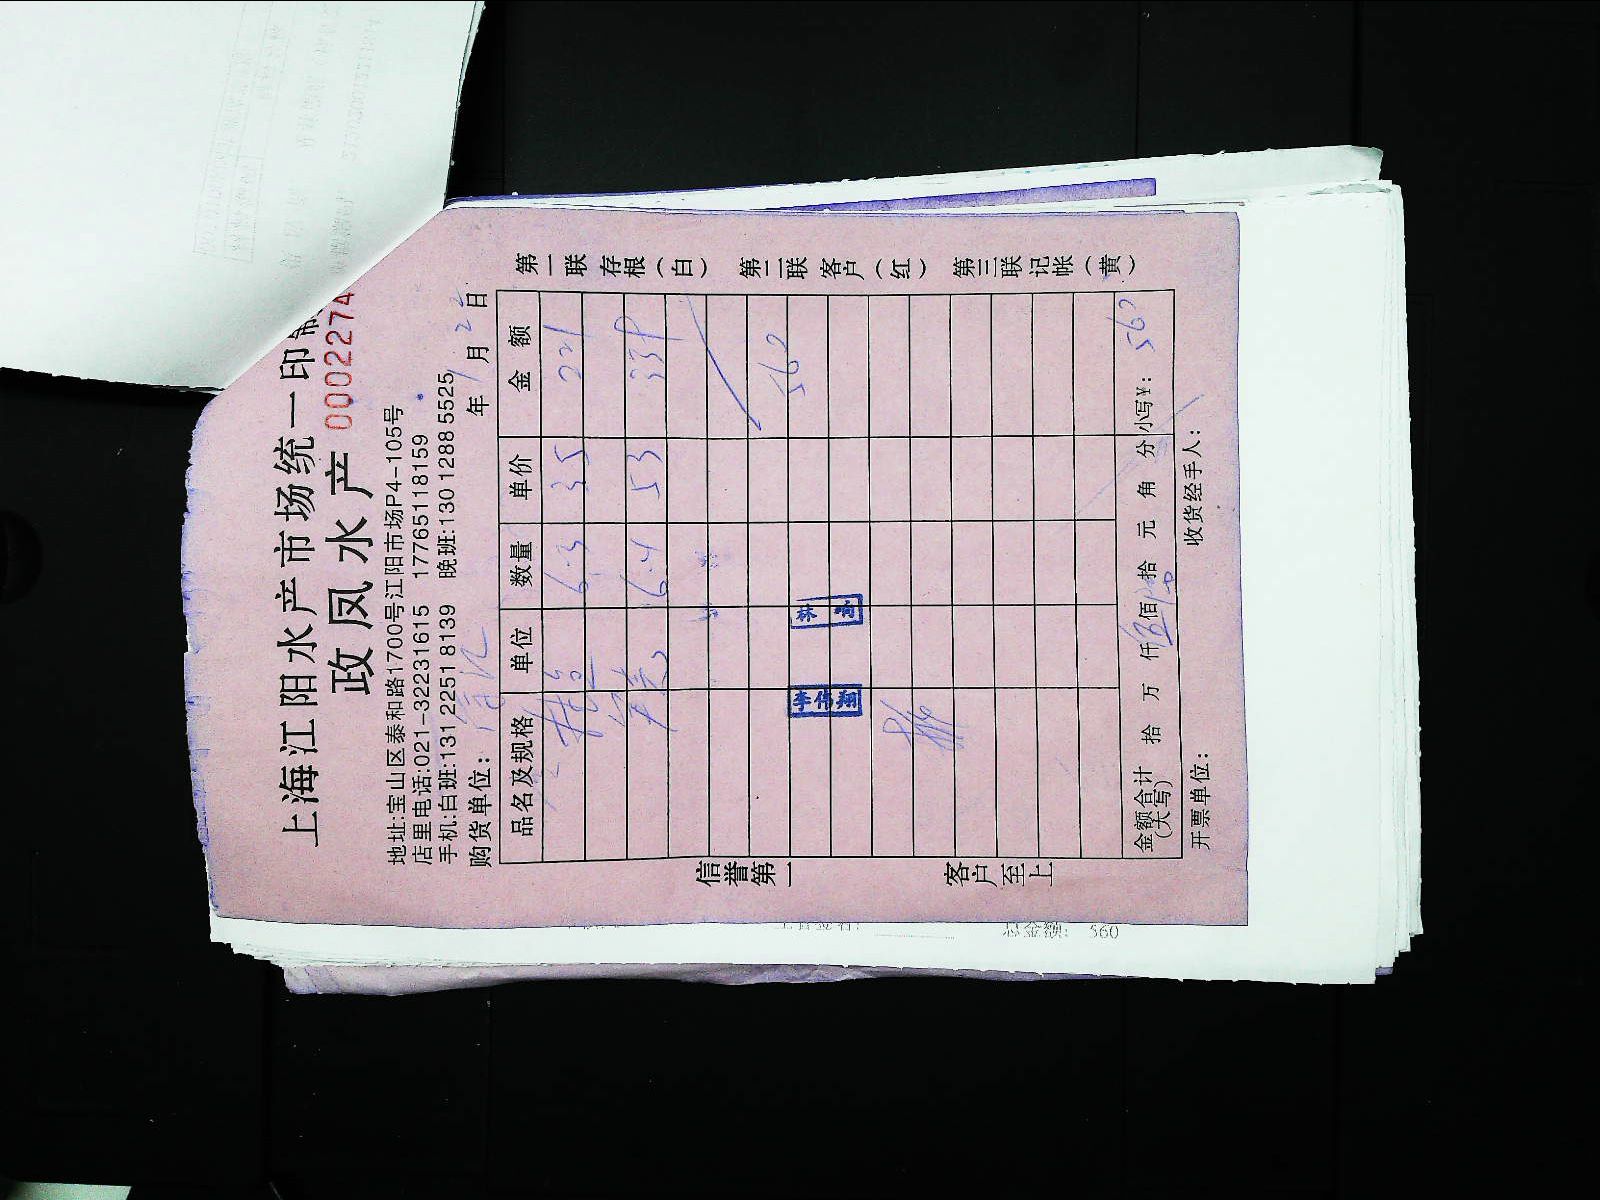 上海江阳水产市场统一印制
政凤水产 0002274
地址:宝山区泰和路1700号江阳市场P4-105号
店里电话:021-32231615 17765118159
手机:白班:131 2251 8139 晚班:130 1288 5525
购货单位: 年 1 月 22 日
品名及规格 单位 数量 单价 金额
6.3 35 221
6.4 53 339
560
林
李伟翔
金额合计(大写) 拾 万 仟 伍 佰 拾 元 角 分 小写¥: 560
开票单位: 收货经手人:
信誉第一 客户至上
第一联 存根(白) 第二联 客户(红) 第三联 记帐(黄)
总金额: 560